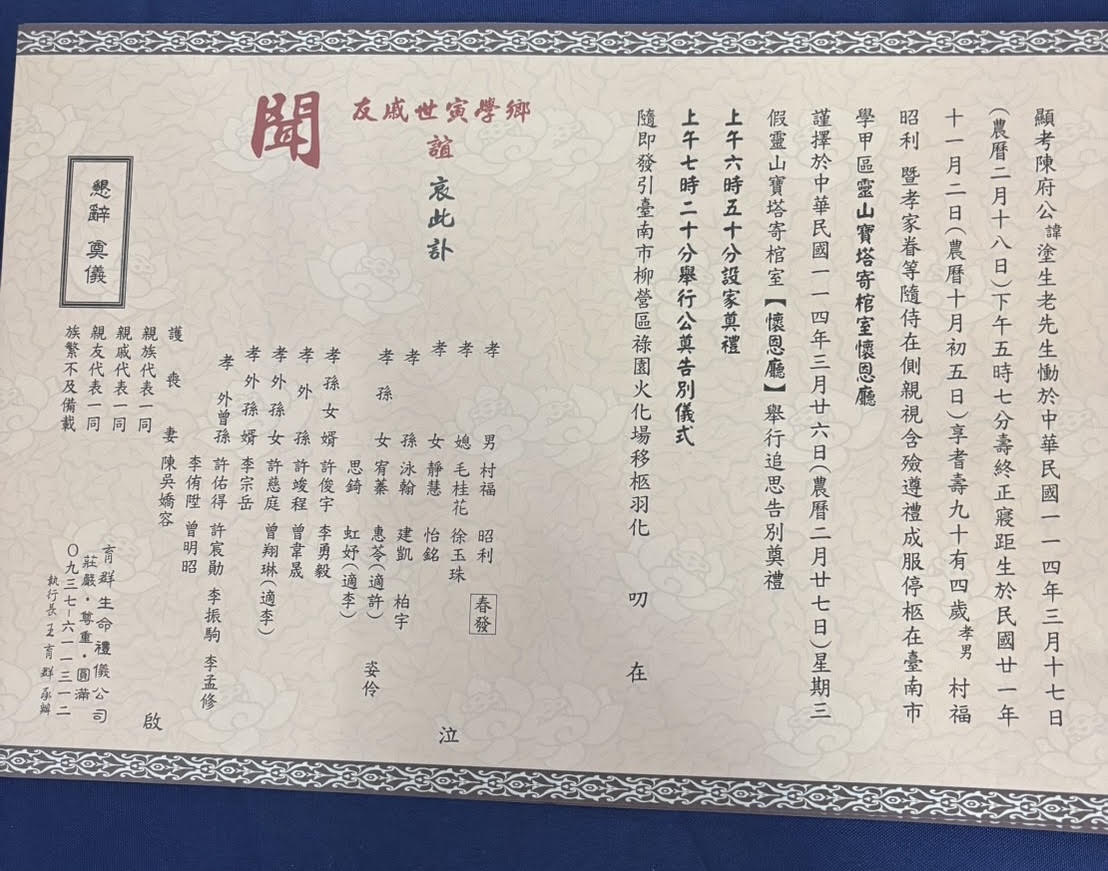 顯考陳府公諱塗生老先生慟於中華民國一一四年三月十七日
(農曆二月十八日)下午五時七分壽終正寢距生於民國廿一年
十一月二日(農曆十月初五日)享耆壽九十有四歲孝男 村福
昭利 暨孝家眷等隨侍在側親視含殮遵禮成服停柩在臺南市
學甲區靈山寶塔寄棺室懷恩廳
謹擇於中華民國一一四年三月廿六日(農曆二月廿七日)星期三
假靈山寶塔寄棺室【懷恩廳】舉行追思告別奠禮
上午六時五十分設家奠禮
上午七時二十分舉行公奠告別儀式
隨即發引臺南市柳營區祿園火化場移柩羽化 叨 在
鄉學寅世戚友
誼 哀此訃
聞
孝 男 村福 昭利 春發
孝 媳 毛桂花 徐玉珠
孝 女 靜慧 怡銘
孝 孫 泳翰 建凱 柏宇
孝 孫 女 宥蓁 惠苓(適許) 姿伶
思錡 虹妤(適李)
孝 孫 女 婿 許俊宇 李勇毅
孝 外 孫 許竣程 曾韋晟
孝 外 孫 女 許慈庭 曾翔琳(適李)
孝 外 孫 婿 李宗岳
孝 外曾孫 許佑得 許宸勛 李振駒 李孟修
李侑陞 曾明昭
泣
護 喪 妻 陳吳嬌容
親族代表一同
親戚代表一同
親友代表一同
族繁不及備載
啟
懇辭 奠儀
育群生命禮儀公司
莊嚴・尊重・圓滿
０九三七-六一一三一二
執行長王育群承辦